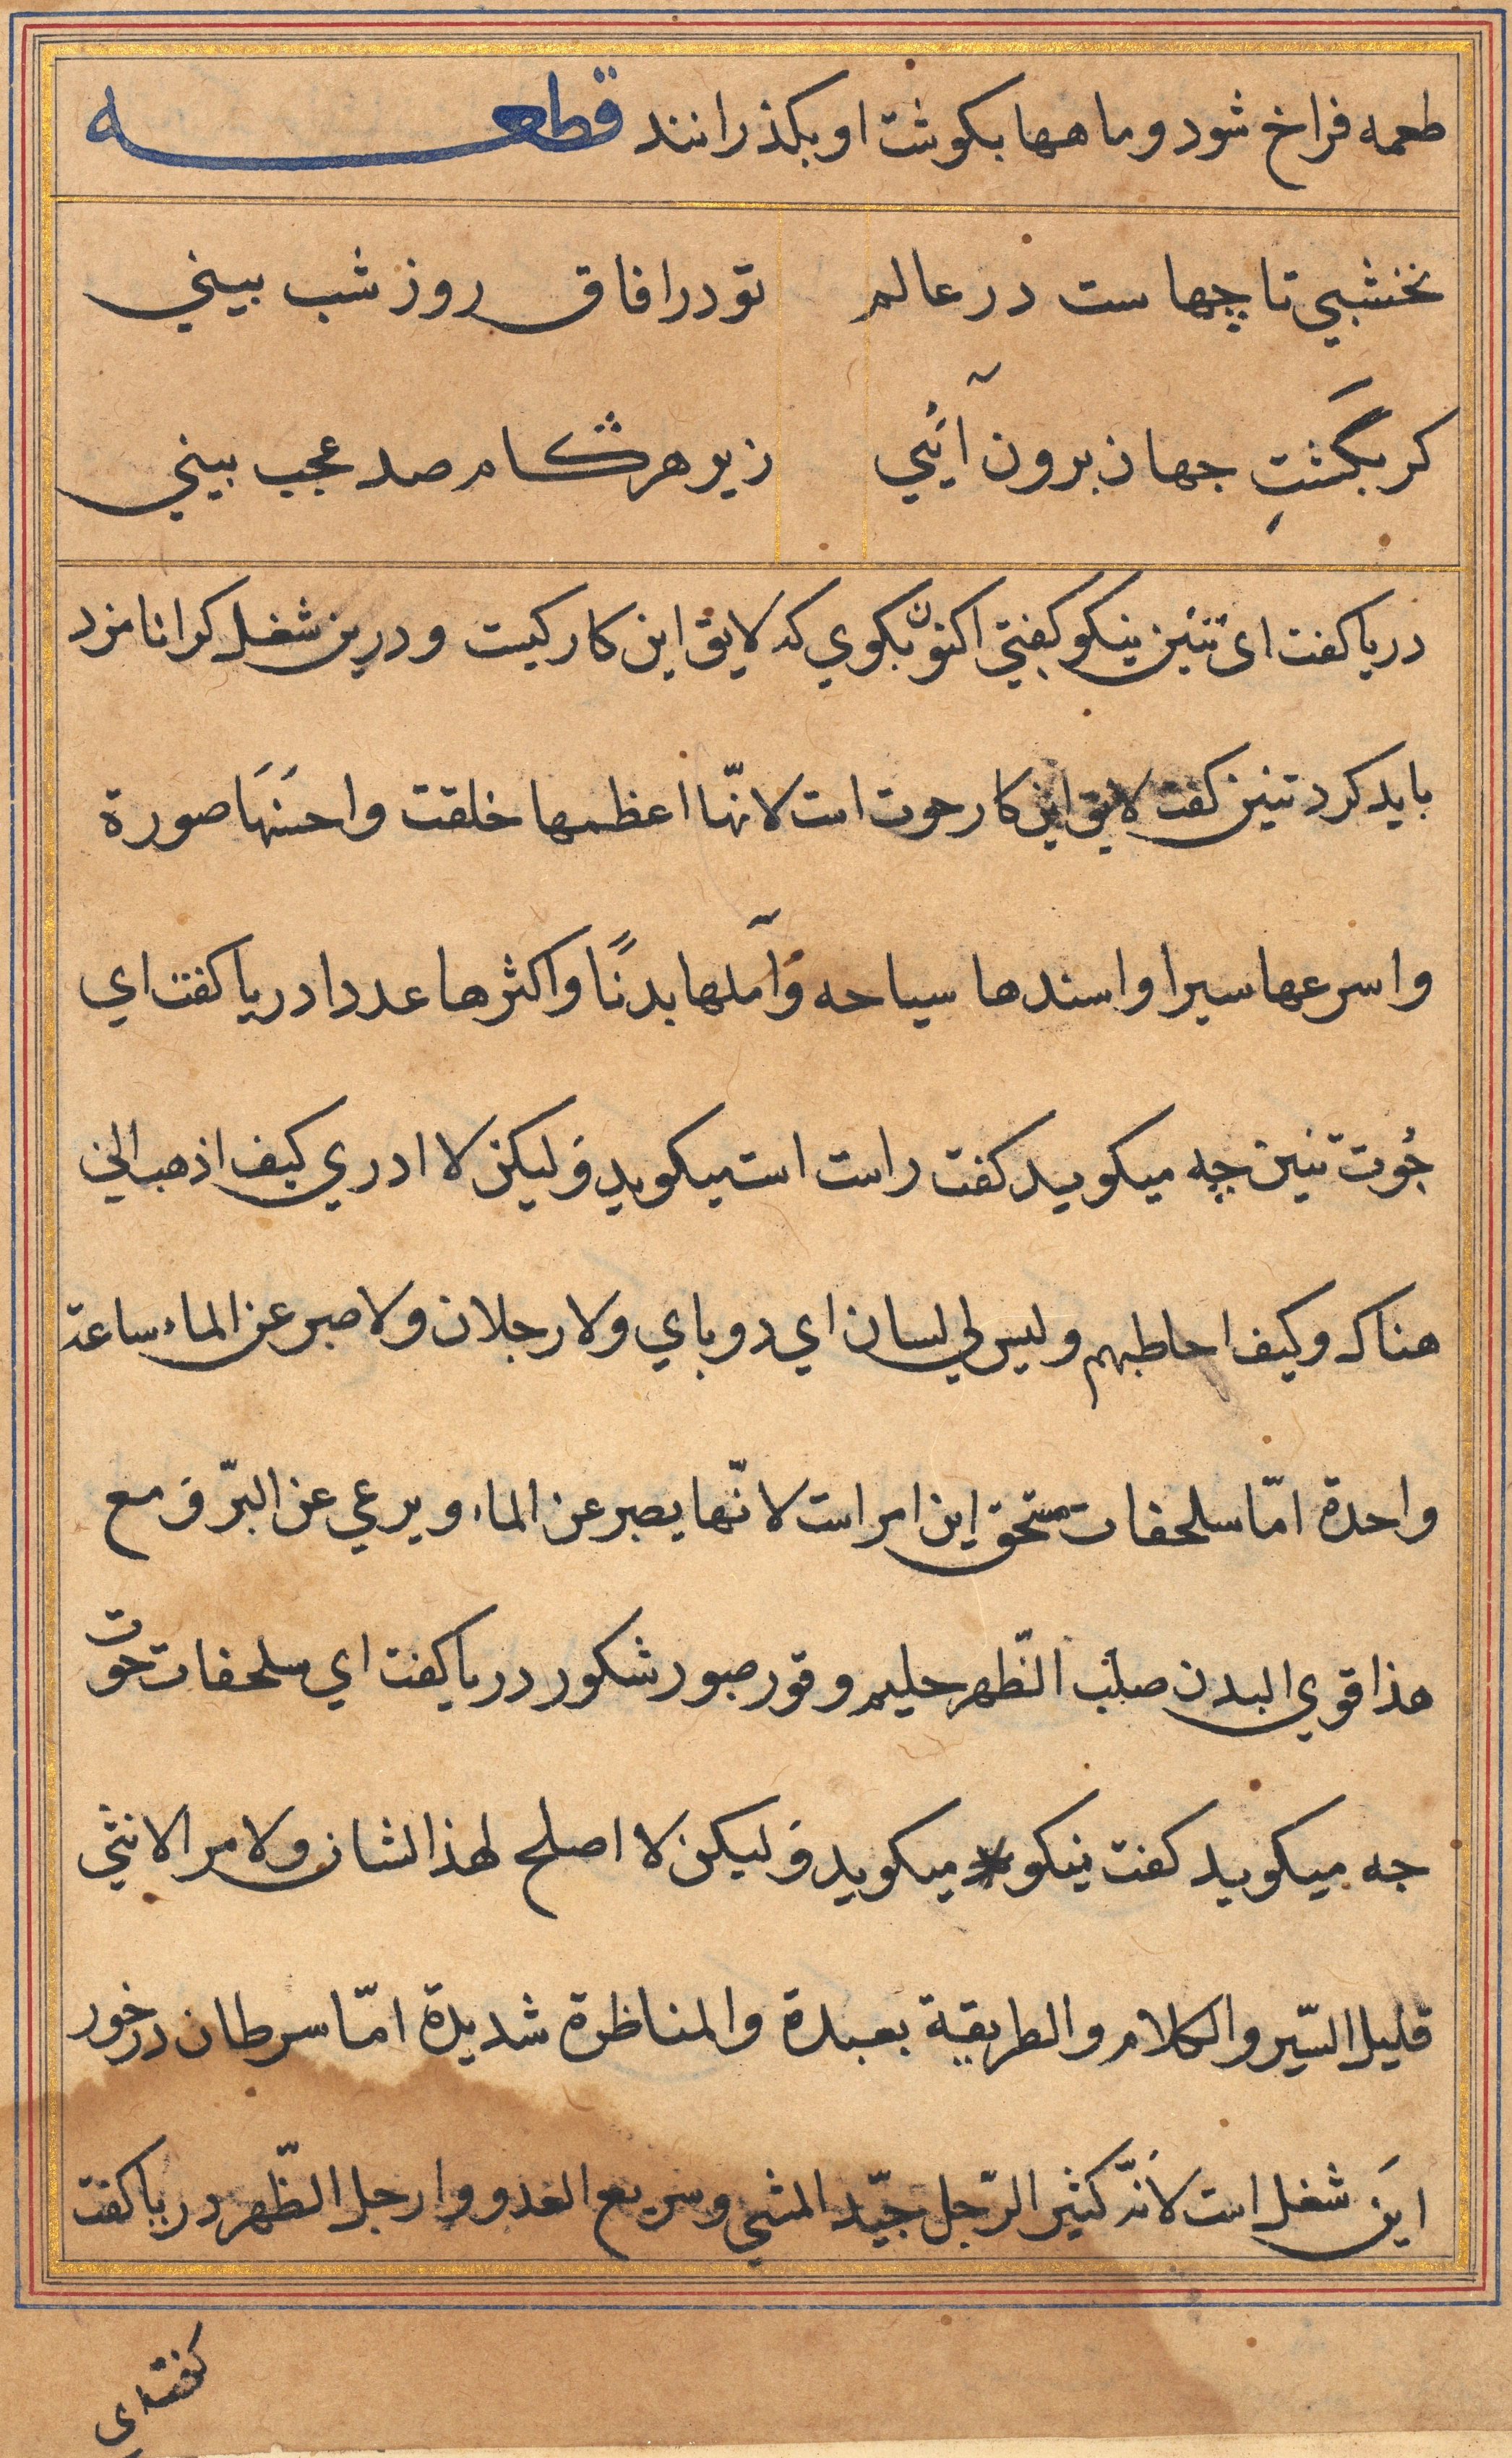 طعمه فراخ شود و ماهها بكوشت او بكذرانند قطعه
نخشبي تا چهاست در عالم تو در افاق روز شب بيني
كر بگشتِ جهان برون آئي زير هر كام صد عجب بيني
دريا كفت اى تنين نيكو كفتي اكنون بكوي كه لايق اين كار كيست و درين شغل كرا نامزد
بايد كرد تنين كفت لايق اين كار حوت است لانّها اعظمها خلقت واحسَنهَا صورة
واسرعها سيرا واسندها سياحه وَآملها بدنًا واكثرها عددا دريا كفت اي
حُوت تنين چه ميكويد كفت راست است ميكويد وَليكن لا ادري كيف اذهب الي
هناك وكيف احاطبهم وليس لي لسان اي دو باي ولا رجلان ولا صبر عن الماء ساعة
واحدة امّا سلحفات مستحق اين امر است لانّها يصبر عن الماء ويرعي عن البرّ وَ مع
هذا قوي البدن صلب الظّهر حليم وقور صبور شكور دريا كفت اي سلحفات حوت
جه ميكويد كفت نيكو ميكويد وَليكن لا اصلح لهذا الشان ولامر الانثي
قليل السّير والكلام والطريقية بعبدة والمناظرة شديدة امّا سرطان درخور
اينَ شغل است لأنّه كثير الرّجل جيّد المشي وسريع العدو وارجل الظّهر دريا كفت
كفت اي